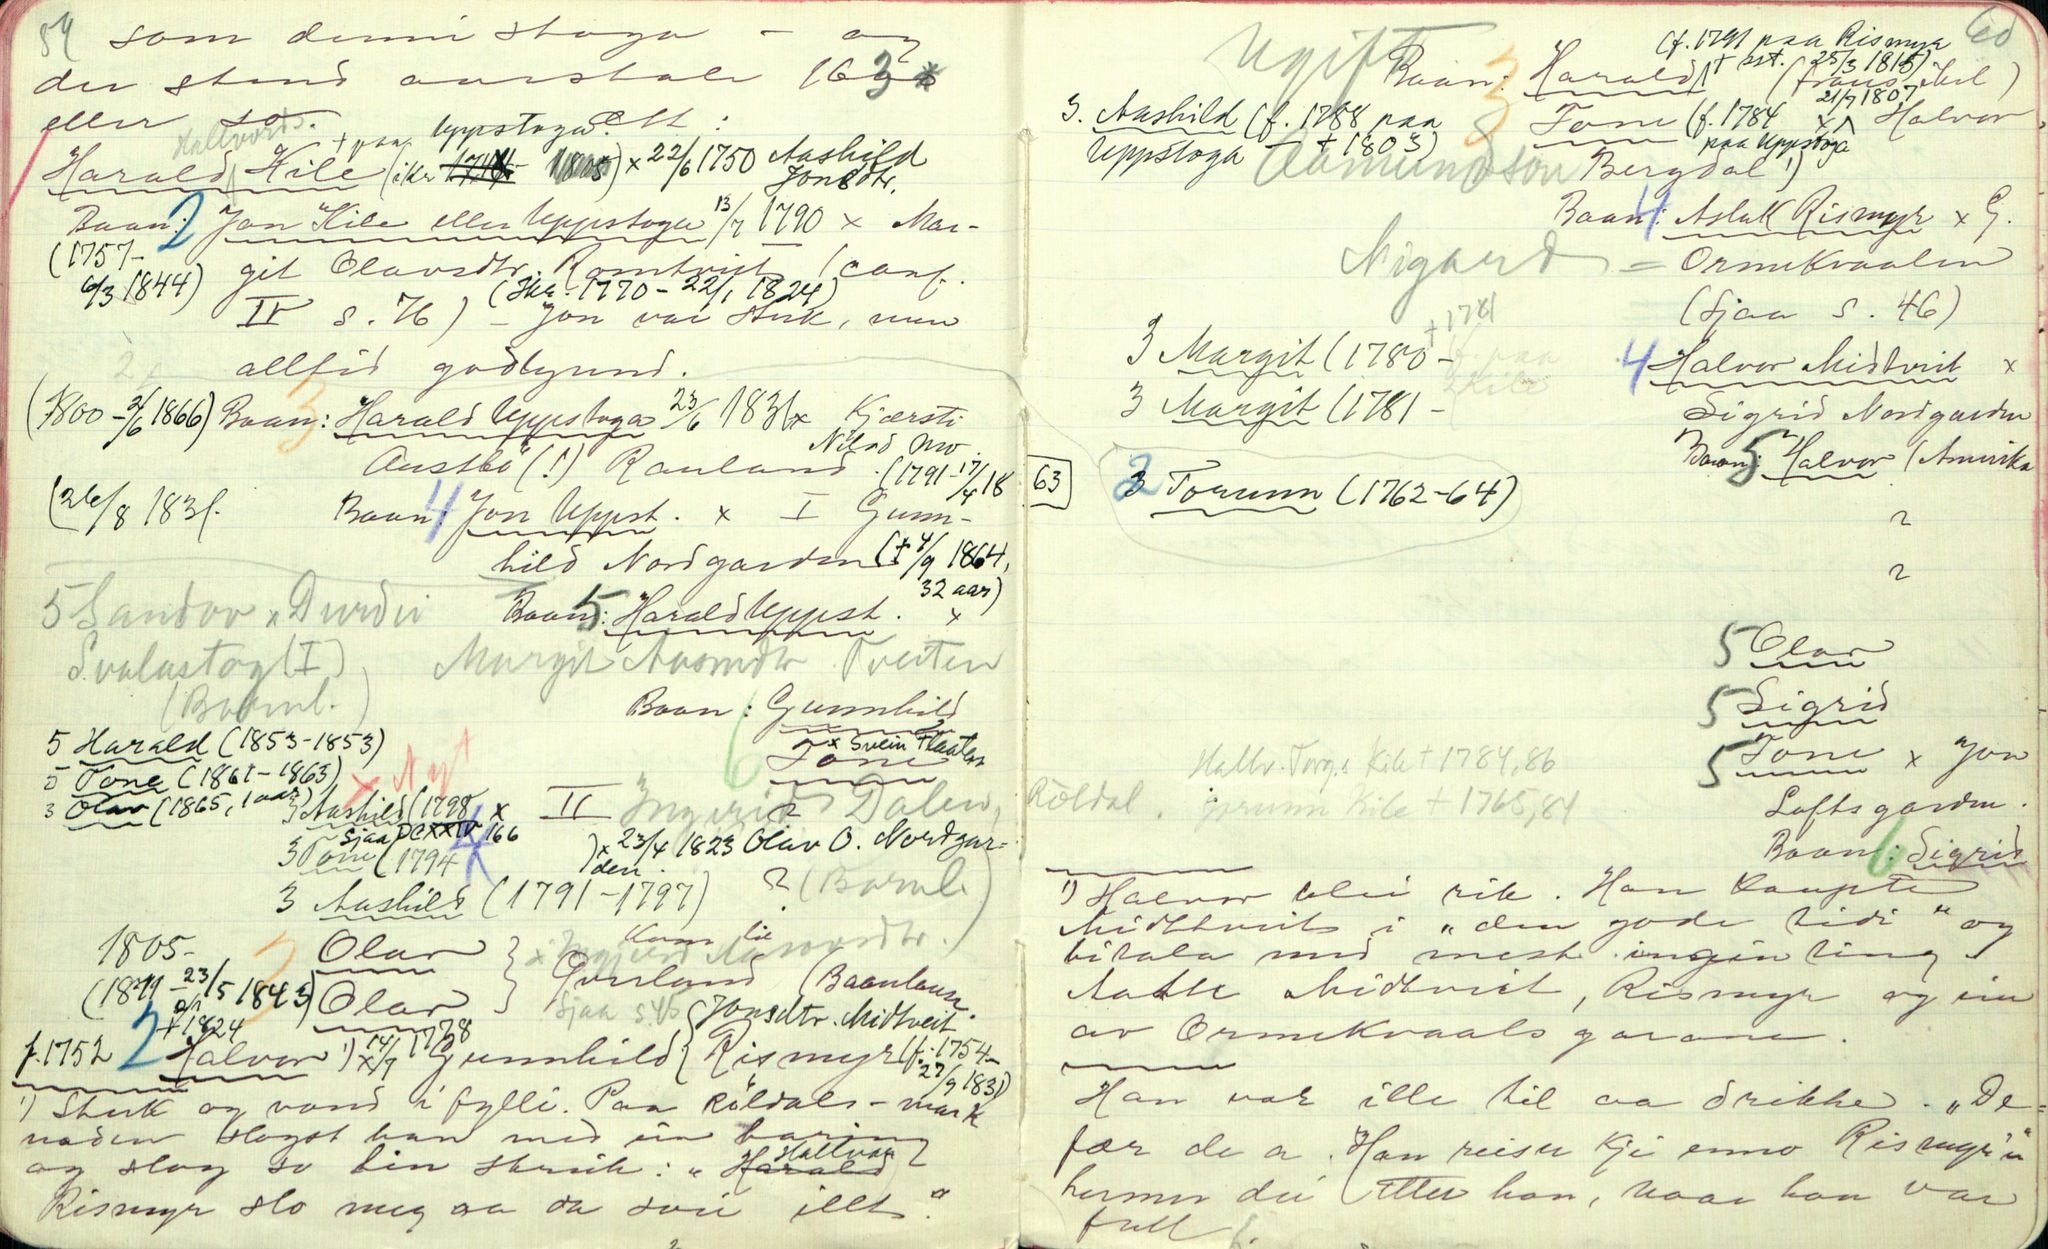 59
som denni stoga – og
der stend aarstale 163
eller so. Ett:
Hallvords. + paa Uppstoga
Harald Kile (ikr 1805) × 22/6 1750 Aashild
Jonsdtr.
Baan: 2 Jon Kile eller Uppstoga 13/7 1790 × Mar-
(1757- git Olavsdtr. Romtveit (conf.
6/3 1844) (Ikr. 1770 – 22/1 1824)
IV s. 76) – Jon var sterk, men
alltid godlynd.
(1800 – 2/6 1866) Baan: 3 Harald Uppstoga 23/6 1831 × Kjærsti
Nilsd Mo
Austbö (!) Rauland. (1791-17/4 18
(26/8 1831. Baan: 4 Jon Uppst. × I Gunn-
hild Nordgarden († 4/9 1864,
32 aar)
5 Sandov × Durdei Baan: 5 Harald Uppst. ×
Svalastog (I) Margit Aasmdtr Tveiten
(Barnl.) Baan: Gunnhild
5 Harald (1853-1853) × Svein Flaaten
5 Tone (1861-1863) 6 Tone
3 Olav (1865, 1 aar) 3 Aashild (1798 × II Ingerid Dalen, Röldal
Sjaa DCXXIV 166
3 Tone (1794 ) × 23/4 1823 Olav O. Nordgar-
den.
3 Aashild (1791-1797) ? (Barnl.)
1805- 3 Olav } Kom til
Øvrland (Baanlaus.
3 Olav Sjaa s. 45
2 † 1824 Jonsdtr. Midtveit
f. 1752 Halvor 1) × 14/7 1778 Gunnhild { Rismyr (f. 1754-
27/9 1831)
1) Sterk og vond i fylli. Paa Röldals-mark
naden slogst han med ein haring
og slog so hin skreik: "Harald Hallvor
Rismyr slo meg saa da svei illt."
60
Ugift (f. 1791 paa Rismyr
† sst. 25/3 1815)
Baan: 3 Harald (
3. Aashild (f. 1788 paa 3 Tone (f. 1784 × 21/7 1807 Halvor
Uppstoga – † 1803) paa Uppstoga
Aamundson Bergdal 1)
Baan: 4 Aslak Rismyr × G.
Nigard = Ormekvaalen
(Sjaa s. 46)
† 1781
3 Margit (1780 - 4 Halvor Midtveit ×
3 Margit (1781 - Sigrid Nordgarden
Baan: 5 Halvor (Amerika
63 2 Torunn (1762-64)
?
?
5 Olav
5 Sigrid
Hallv. Torg.s Kile † 1784, 86 5 Tone × Jon
Jorunn Kile † 1765, 84 Loftsgarden.
Baan: 6 Sigrid
1) Halvor blei rik. Han kaupte
Midtveit i "den gode tidi" og
bitala med mest ingin ting.
Aatte Midtveit, Rismyr og ein
av Ormekvaals garane.
Han var ille til aa drikke. "De-
fær de a. Han reiser kji enno Rismyr'n"
hermer dei etter han, naar han var
full.